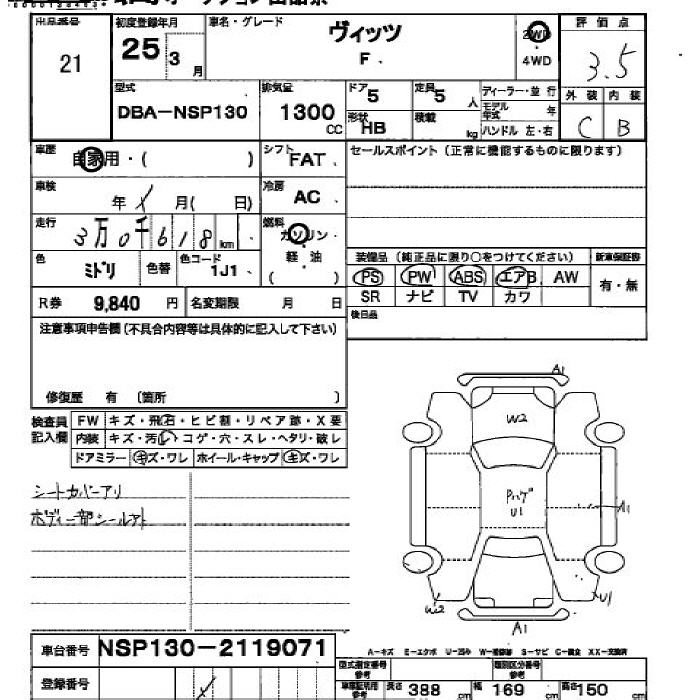 出品番号
21
初度登録年月
25 3 月
車名・グレード
ヴィッツ
F
2WD
4WD
評価点
3.5
型式
DBA-NSP130
排気量
1300 CC
ドア 5
定員 5 人
ディーラー・並 行
モデル年式 年
形状 HB
積載 kg
ハンドル 左・右
外 装 内 装
C B
車歴
自家用・( )
シフト
FAT
セールスポイント(正常に機能するものに限ります)
車検
年 月( 日)
冷房
AC
走行
3万0千618km
燃料
ガソリン・
軽・油
( )
色
ミドリ
色替
色コード
1J1
装備品 (純正品に限り○をつけてください) 新車保証書
PS PW ABS エアB AW
SR ナビ TV カワ
有・無
R券 9,840 円 名変期限 月 日
後日品
注意事項申告欄(不具合内容等は具体的に記入して下さい)
修復歴 有 (箇所 )
検査員
記入欄
FW キズ・飛石・ヒビ割・リペア跡・X要
内装 キズ・汚レ・コゲ・穴・スレ・ヘタリ・破レ
ドアミラー キズ・ワレ ホイール・キャップ キズ・ワレ
シートカバーアリ
ボディ一部シールアト
A1
W2
U1
A1
W2
U1
A1
車台番号 NSP130-2119071
A-キズ E-エクボ U-凹み W-補修跡 S-サビ C-腐食 XX-交換済
登録番号
型式指定番号
参考
類別区分番号
参考
車庫証明用
参考
長さ 388 cm 幅 169 cm 高さ 150 cm